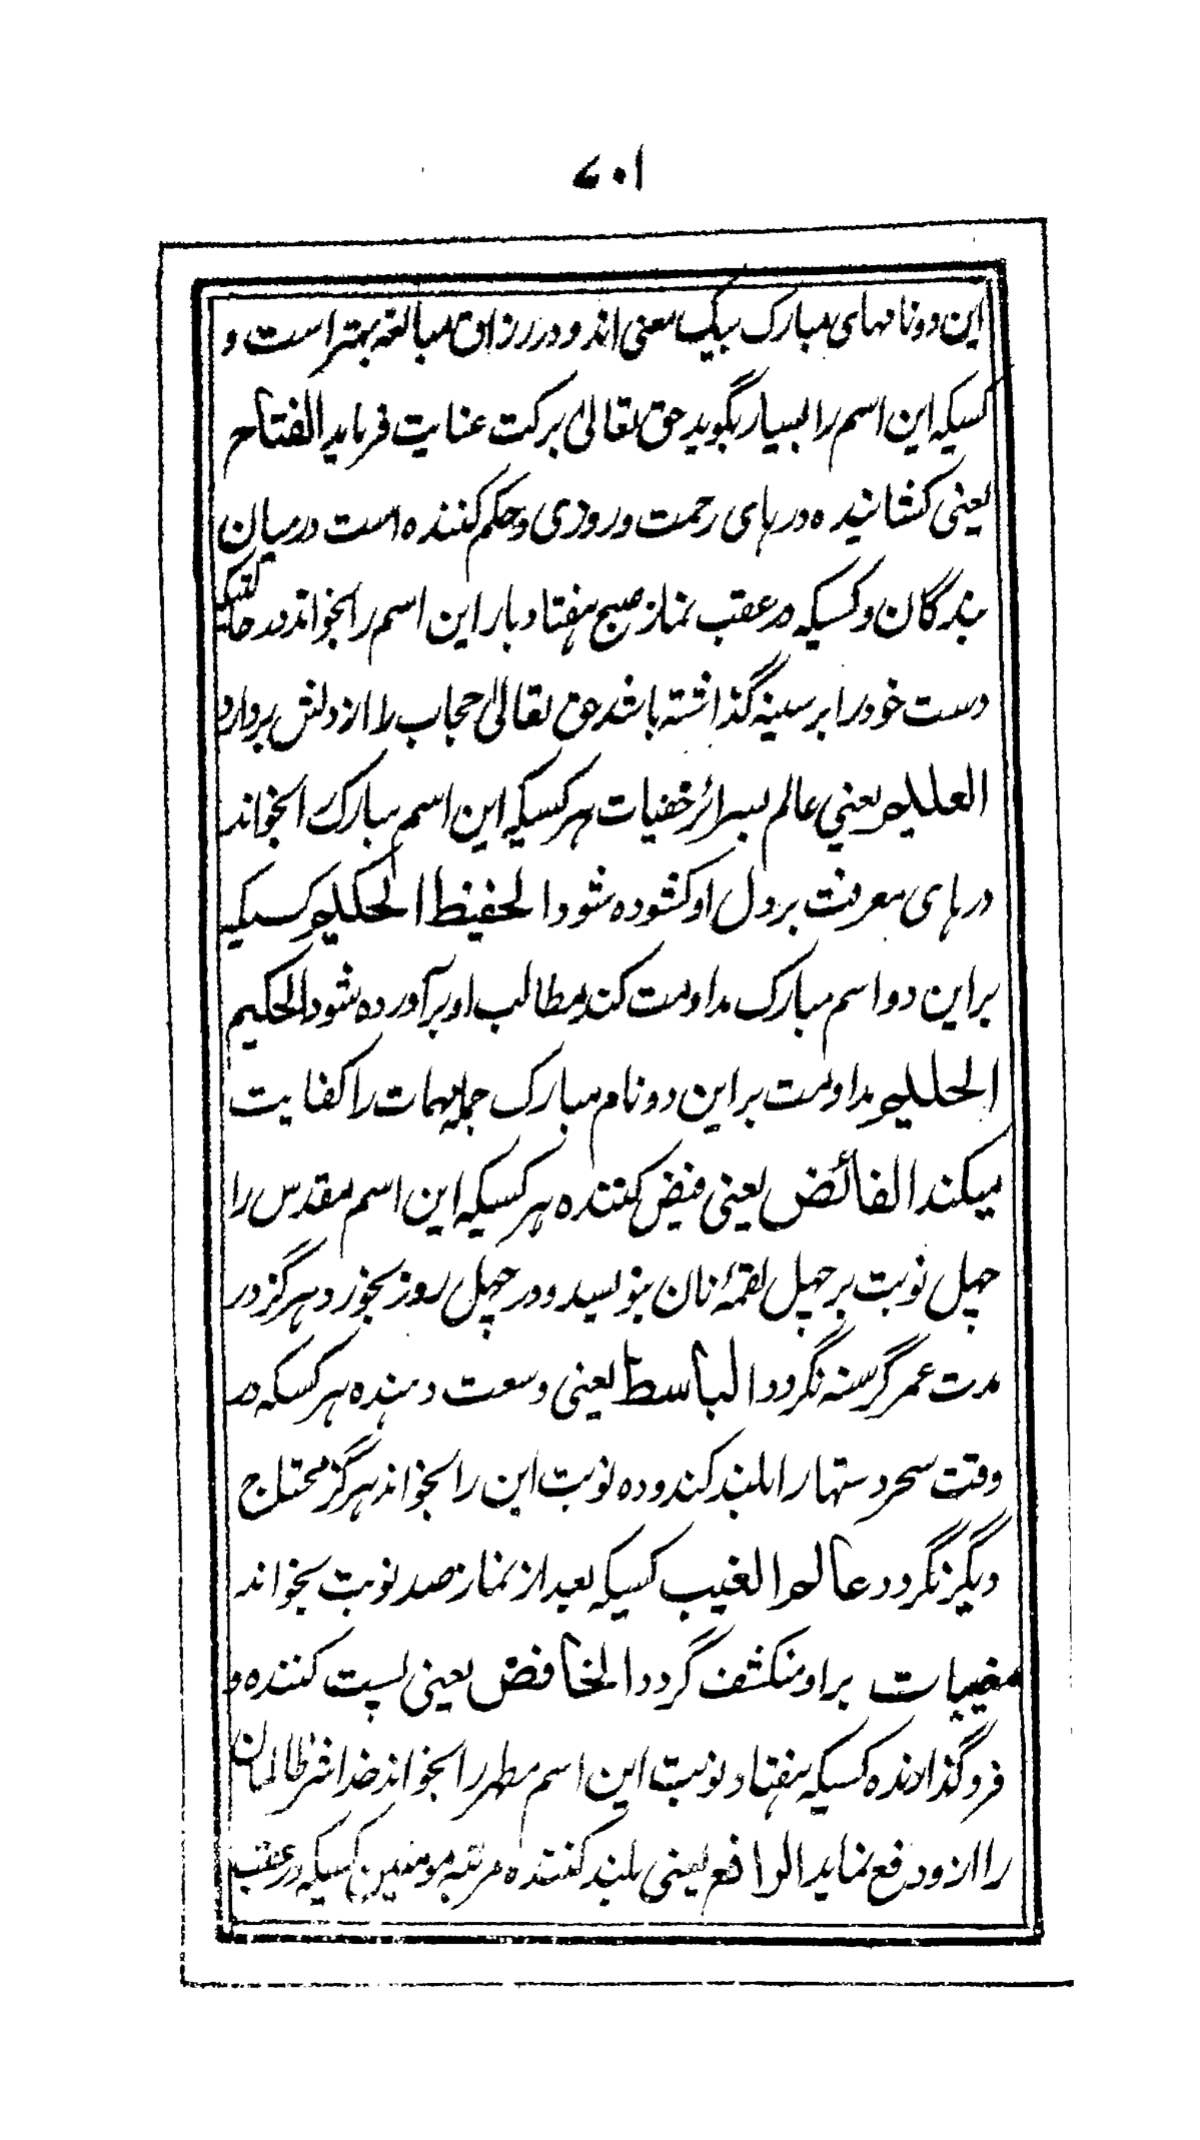 ۱۰۶
این دو نامهای مبارک بیک معنی اند و در رزاق مبالغه بهتر است و
کسیکه این اسم را بسیار بگوید حق تعالی برکت عنایت فرماید الفتاح
یعنی کشانیده درهای رحمت و روزی و حکم کننده است درمیان
بندگان و کسیکه در عقب نماز صبح هفتاد بار این اسم را بخواند در حالتیکه
دست خود را بر سینه گذاشته باشد حق تعالی حجاب را از دلش بردارد
العلیم یعنی عالم بسرائر خفیات هر کسیکه این اسم مبارک را بخواند
درهای معرفت بر دل او کشوده شود الحفیظ الحکیم کسیکه
بر این دو اسم مبارک مداومت کند مطالب او برآورده شود الحکیم
الحلیم مداومت بر این دو نام مبارک جمله مهمات را کفایت
میکند الفائض یعنی فیض کننده هر کسیکه این اسم مقدس را
چهل نوبت بر چهل لقمهٔ نان بنویسد و در چهل روز بخورد هرگز در
مدت عمر گرسنه نگردد الباسط یعنی وسعت دهنده هر کسکه در
وقت سحر دستها را بلند کند و ده نوبت این را بخواند هرگز محتاج
دیگر نگردد عالم الغیب کسیکه بعد از نماز صد نوبت بخواند
مغیبات بر او منکشف گردد الخافض یعنی پست کننده و
فرو گذارنده کسیکه هفتاد نوبت این اسم مطهر را بخواند خدا شر ظالمان
را از و دفع نماید الرافع یعنی بلند کننده مرتبه مومنین کسیکه در عقب